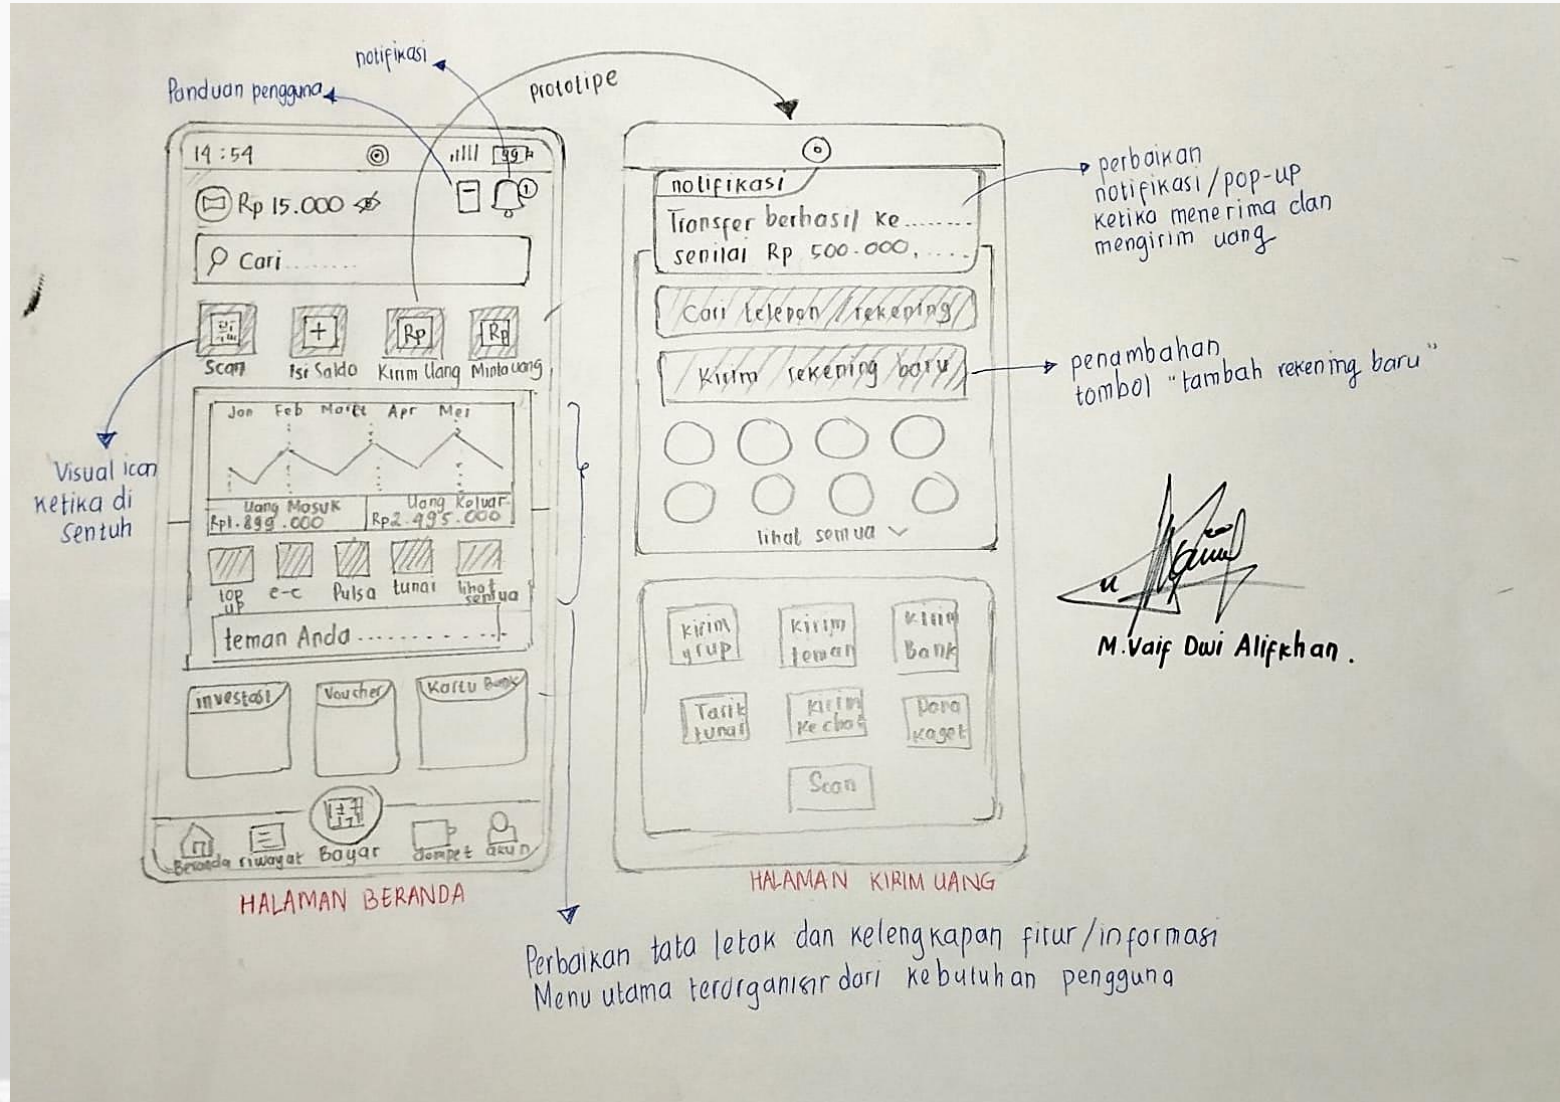 notifikasi
Panduan pengguna
prototipe
14:54
99
Rp 15.000
1
Cari........
Scan
Isi Saldo
Rp
Kirim Uang
Rp
Minta uang
Jan Feb Maret Apr Mei
Uang Masuk
Rp1.899.000
Uang Keluar
Rp2.495.000
top up
e-c
Pulsa
tunai
lihat semua
teman Anda ............
investasi
Voucher
Kartu Bank
Beranda
riwayat
Bayar
dompet
akun
HALAMAN BERANDA
Visual icon
ketika di
sentuh
notifikasi
Transfer berhasil ke........
senilai Rp 500.000,....
Cari telepon/rekening
Kirim rekening baru
lihat semua
Kirim
grup
Kirim
teman
Kirim
Bank
Tarik
tunai
Kirim
ke chat
Dana
kaget
Scan
HALAMAN KIRIM UANG
perbaikan
notifikasi/pop-up
ketika menerima dan
mengirim uang
penambahan
tombol "tambah rekening baru"
M.Vaif Dwi Alifkhan.
Perbaikan tata letak dan kelengkapan fitur/informasi
Menu utama terorganisir dari kebutuhan pengguna